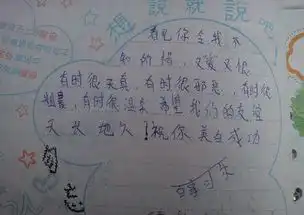 短说就说吧
看见你会我不
知所措,又爱又恨
有时很天真,有时很邪恶,有时很
粗鲁,有时很温柔 希望 我们的友谊
天长地久!祝你 美白成功
百事可乐